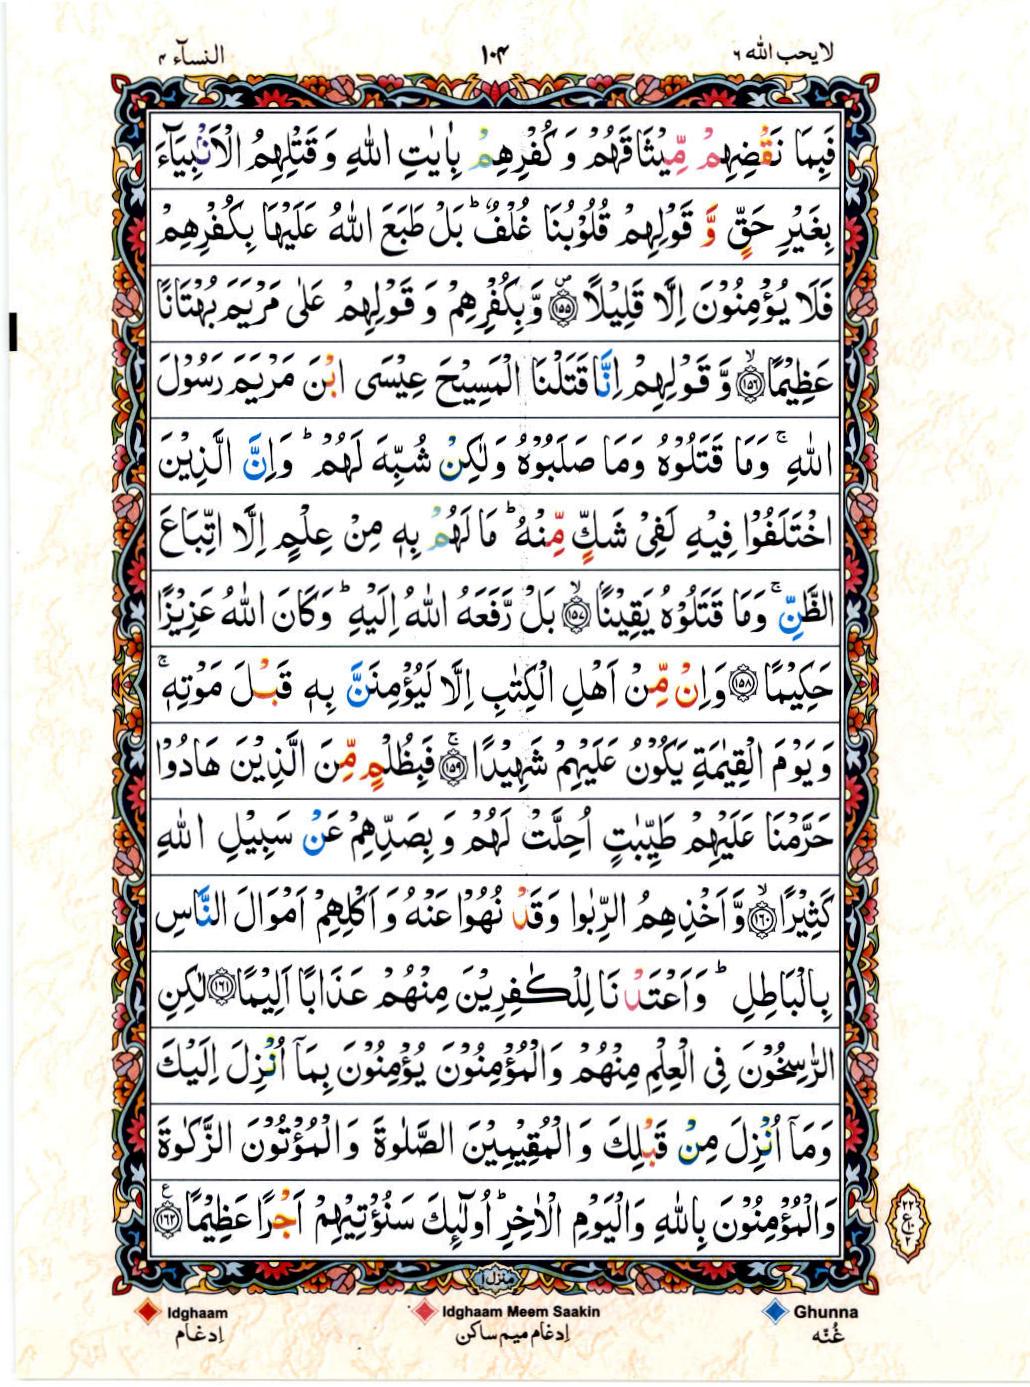 لا يحب الله ٦
١٠٤
النسآء ٤
فَبِمَا نَقْضِهِمْ مِّيْثَاقَهُمْ وَ كُفْرِهِمْ بِاٰيٰتِ اللّٰهِ وَ قَتْلِهِمُ الْاَنْۢبِيَآءَ
بِغَيْرِ حَقٍّ وَّ قَوْلِهِمْ قُلُوْبُنَا غُلْفٌ ؕ بَلْ طَبَعَ اللّٰهُ عَلَيْهَا بِكُفْرِهِمْ
فَلَا يُؤْمِنُوْنَ اِلَّا قَلِيْلًا ۪﴿۱۵۵﴾ وَّ بِكُفْرِهِمْ وَ قَوْلِهِمْ عَلٰى مَرْيَمَ بُهْتَانًا
عَظِيْمًا ۙ﴿۱۵۶﴾ وَّ قَوْلِهِمْ اِنَّا قَتَلْنَا الْمَسِيْحَ عِيْسَى ابْنَ مَرْيَمَ رَسُوْلَ
اللّٰهِ ۚ وَمَا قَتَلُوْهُ وَمَا صَلَبُوْهُ وَلٰكِنْ شُبِّهَ لَهُمْ ؕ وَاِنَّ الَّذِيْنَ
اخْتَلَفُوْا فِيْهِ لَفِيْ شَكٍّ مِّنْهُ ؕ مَا لَهُمْ بِهٖ مِنْ عِلْمٍ اِلَّا اتِّبَاعَ
الظَّنِّ ۚ وَمَا قَتَلُوْهُ يَقِيْنًا ۙ﴿۱۵۷﴾ بَلْ رَّفَعَهُ اللّٰهُ اِلَيْهِ ؕ وَكَانَ اللّٰهُ عَزِيْزًا
حَكِيْمًا ﴿۱۵۸﴾ وَاِنْ مِّنْ اَهْلِ الْكِتٰبِ اِلَّا لَيُؤْمِنَنَّ بِهٖ قَبْلَ مَوْتِهٖ ۚ
وَيَوْمَ الْقِيٰمَةِ يَكُوْنُ عَلَيْهِمْ شَهِيْدًا ۚ﴿۱۵۹﴾ فَبِظُلْمٍ مِّنَ الَّذِيْنَ هَادُوْا
حَرَّمْنَا عَلَيْهِمْ طَيِّبٰتٍ اُحِلَّتْ لَهُمْ وَ بِصَدِّهِمْ عَنْ سَبِيْلِ اللّٰهِ
كَثِيْرًا ۙ﴿۱۶۰﴾ وَّ اَخْذِهِمُ الرِّبٰوا وَقَدْ نُهُوْا عَنْهُ وَ اَكْلِهِمْ اَمْوَالَ النَّاسِ
بِالْبَاطِلِ ؕ وَاَعْتَدْنَا لِلْكٰفِرِيْنَ مِنْهُمْ عَذَابًا اَلِيْمًا ﴿۱۶۱﴾ لٰكِنِ
الرّٰسِخُوْنَ فِي الْعِلْمِ مِنْهُمْ وَالْمُؤْمِنُوْنَ يُؤْمِنُوْنَ بِمَاۤ اُنْزِلَ اِلَيْكَ
وَمَاۤ اُنْزِلَ مِنْ قَبْلِكَ وَالْمُقِيْمِيْنَ الصَّلٰوةَ وَالْمُؤْتُوْنَ الزَّكٰوةَ
وَالْمُؤْمِنُوْنَ بِاللّٰهِ وَالْيَوْمِ الْاٰخِرِ ؕ اُولٰٓئِكَ سَنُؤْتِيْهِمْ اَجْرًا عَظِيْمًا ﴿۱۶۲﴾ ع
منزل ١
Idghaam
Idghaam Meem Saakin
Ghunna
اِدغام
اِدغام میم ساکن
غُنّه